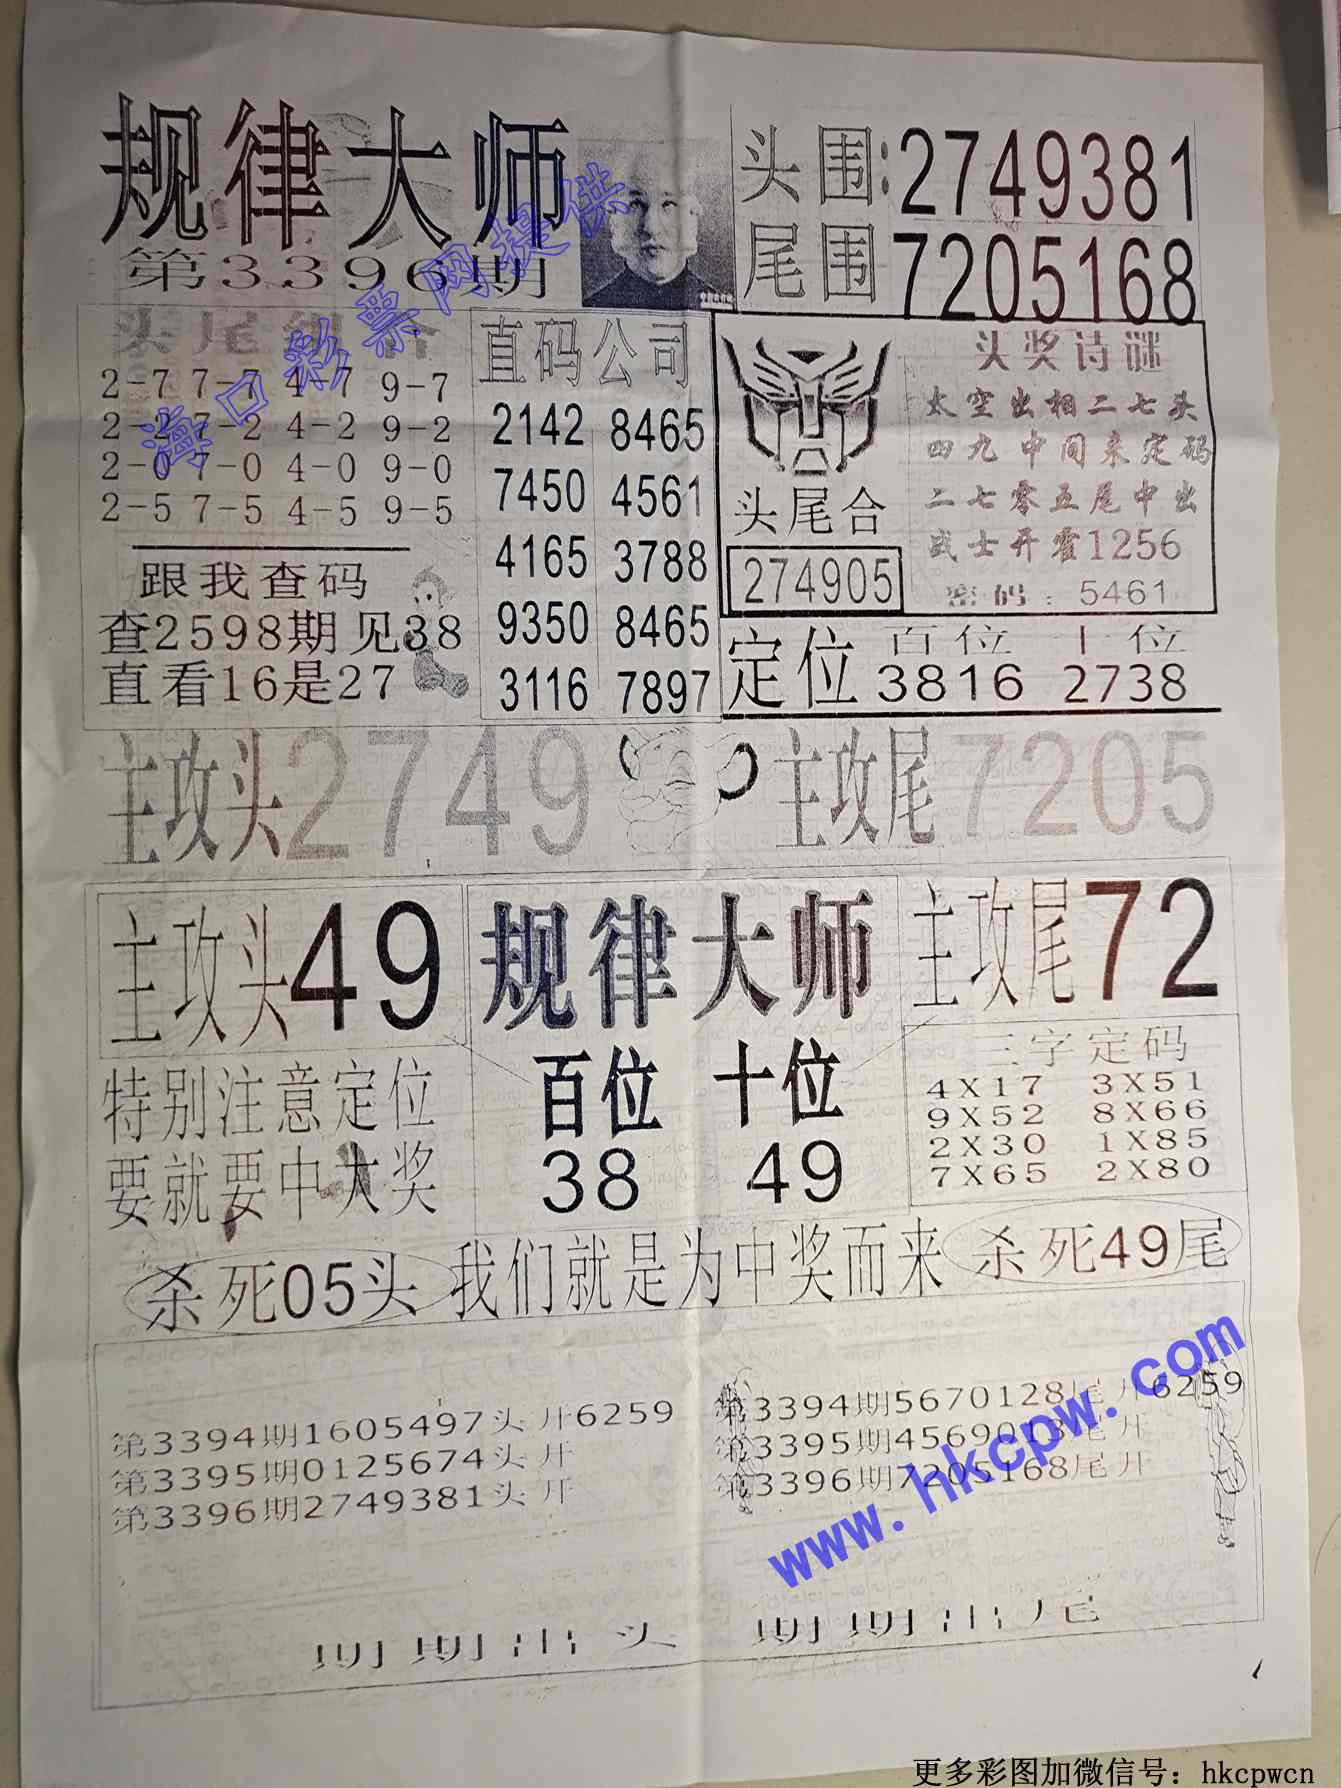 规律大师
第3396期
头围:2749381
尾围 7205168
头尾组合
2-7 7-7 4-7 9-7
2-2 7-2 4-2 9-2
2-0 7-0 4-0 9-0
2-5 7-5 4-5 9-5
跟我查码
查2598期见38
直看16是27
直码公司
2142 8465
7450 4561
4165 3788
9350 8465
3116 7897
头尾合
274905
头奖诗谜
太空出相二七头
四九中间来定码
二七零五尾中出
武士开霍1256
密码:5461
定位 百位 十位
3816 2738
主攻头2749
主攻尾7205
主攻头49
规律大师
主攻尾72
特别注意定位
要就要中大奖
百位 十位
38 49
三字定码
4X17 3X51
9X52 8X66
2X30 1X85
7X65 2X80
杀死05头 我们就是为中奖而来 杀死49尾
第3394期1605497头开6259
第3395期0125674头开
第3396期2749381头开
第3394期5670128尾开6259
第3395期4569013尾开
第3396期7205168尾开
期期出头 期期出尾
海口彩票网提供
www.hkcpw.com
更多彩图加微信号：hkcpwcn